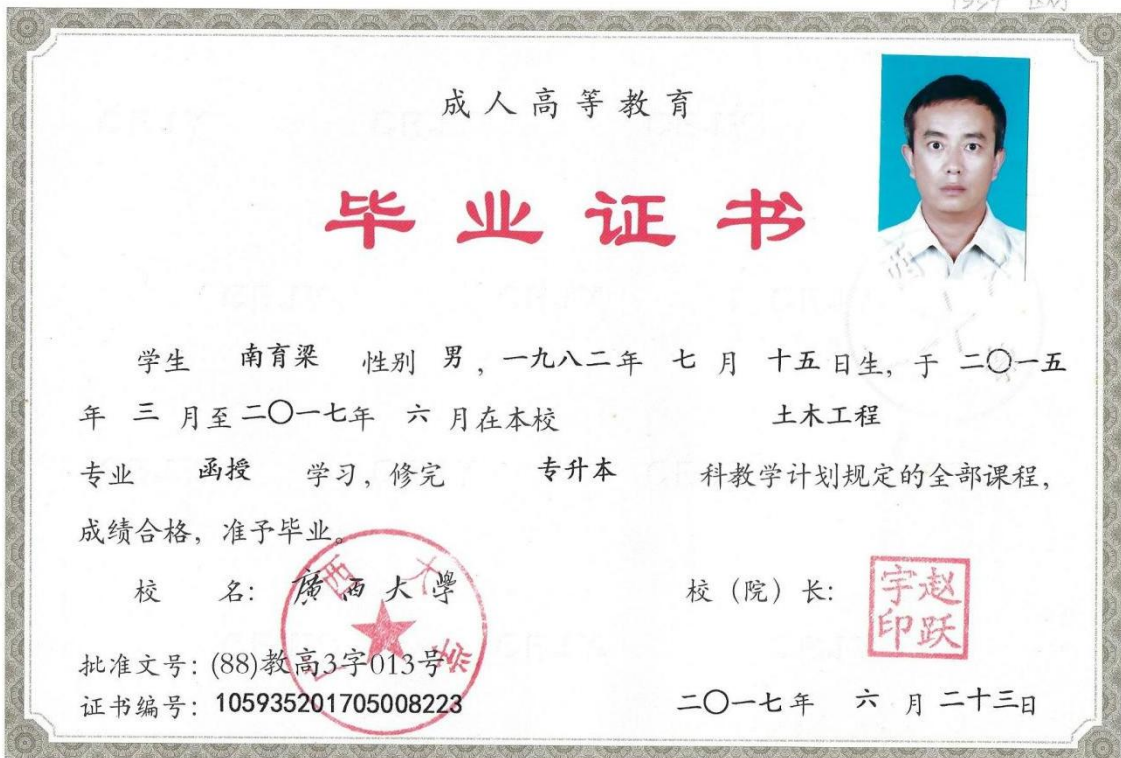 成人高等教育
毕业证书
学生 南育梁 性别 男，一九八二年 七 月 十五日生，于 二〇一五
年 三 月至二〇一七年 六 月在本校 土木工程
专业 函授 学习，修完 专升本 科教学计划规定的全部课程，
成绩合格，准予毕业。
校 名：廣西大學 校（院）长：
赵跃宇印
批准文号：(88)教高3字013号
证书编号：105935201705008223 二〇一七年 六 月二十三日